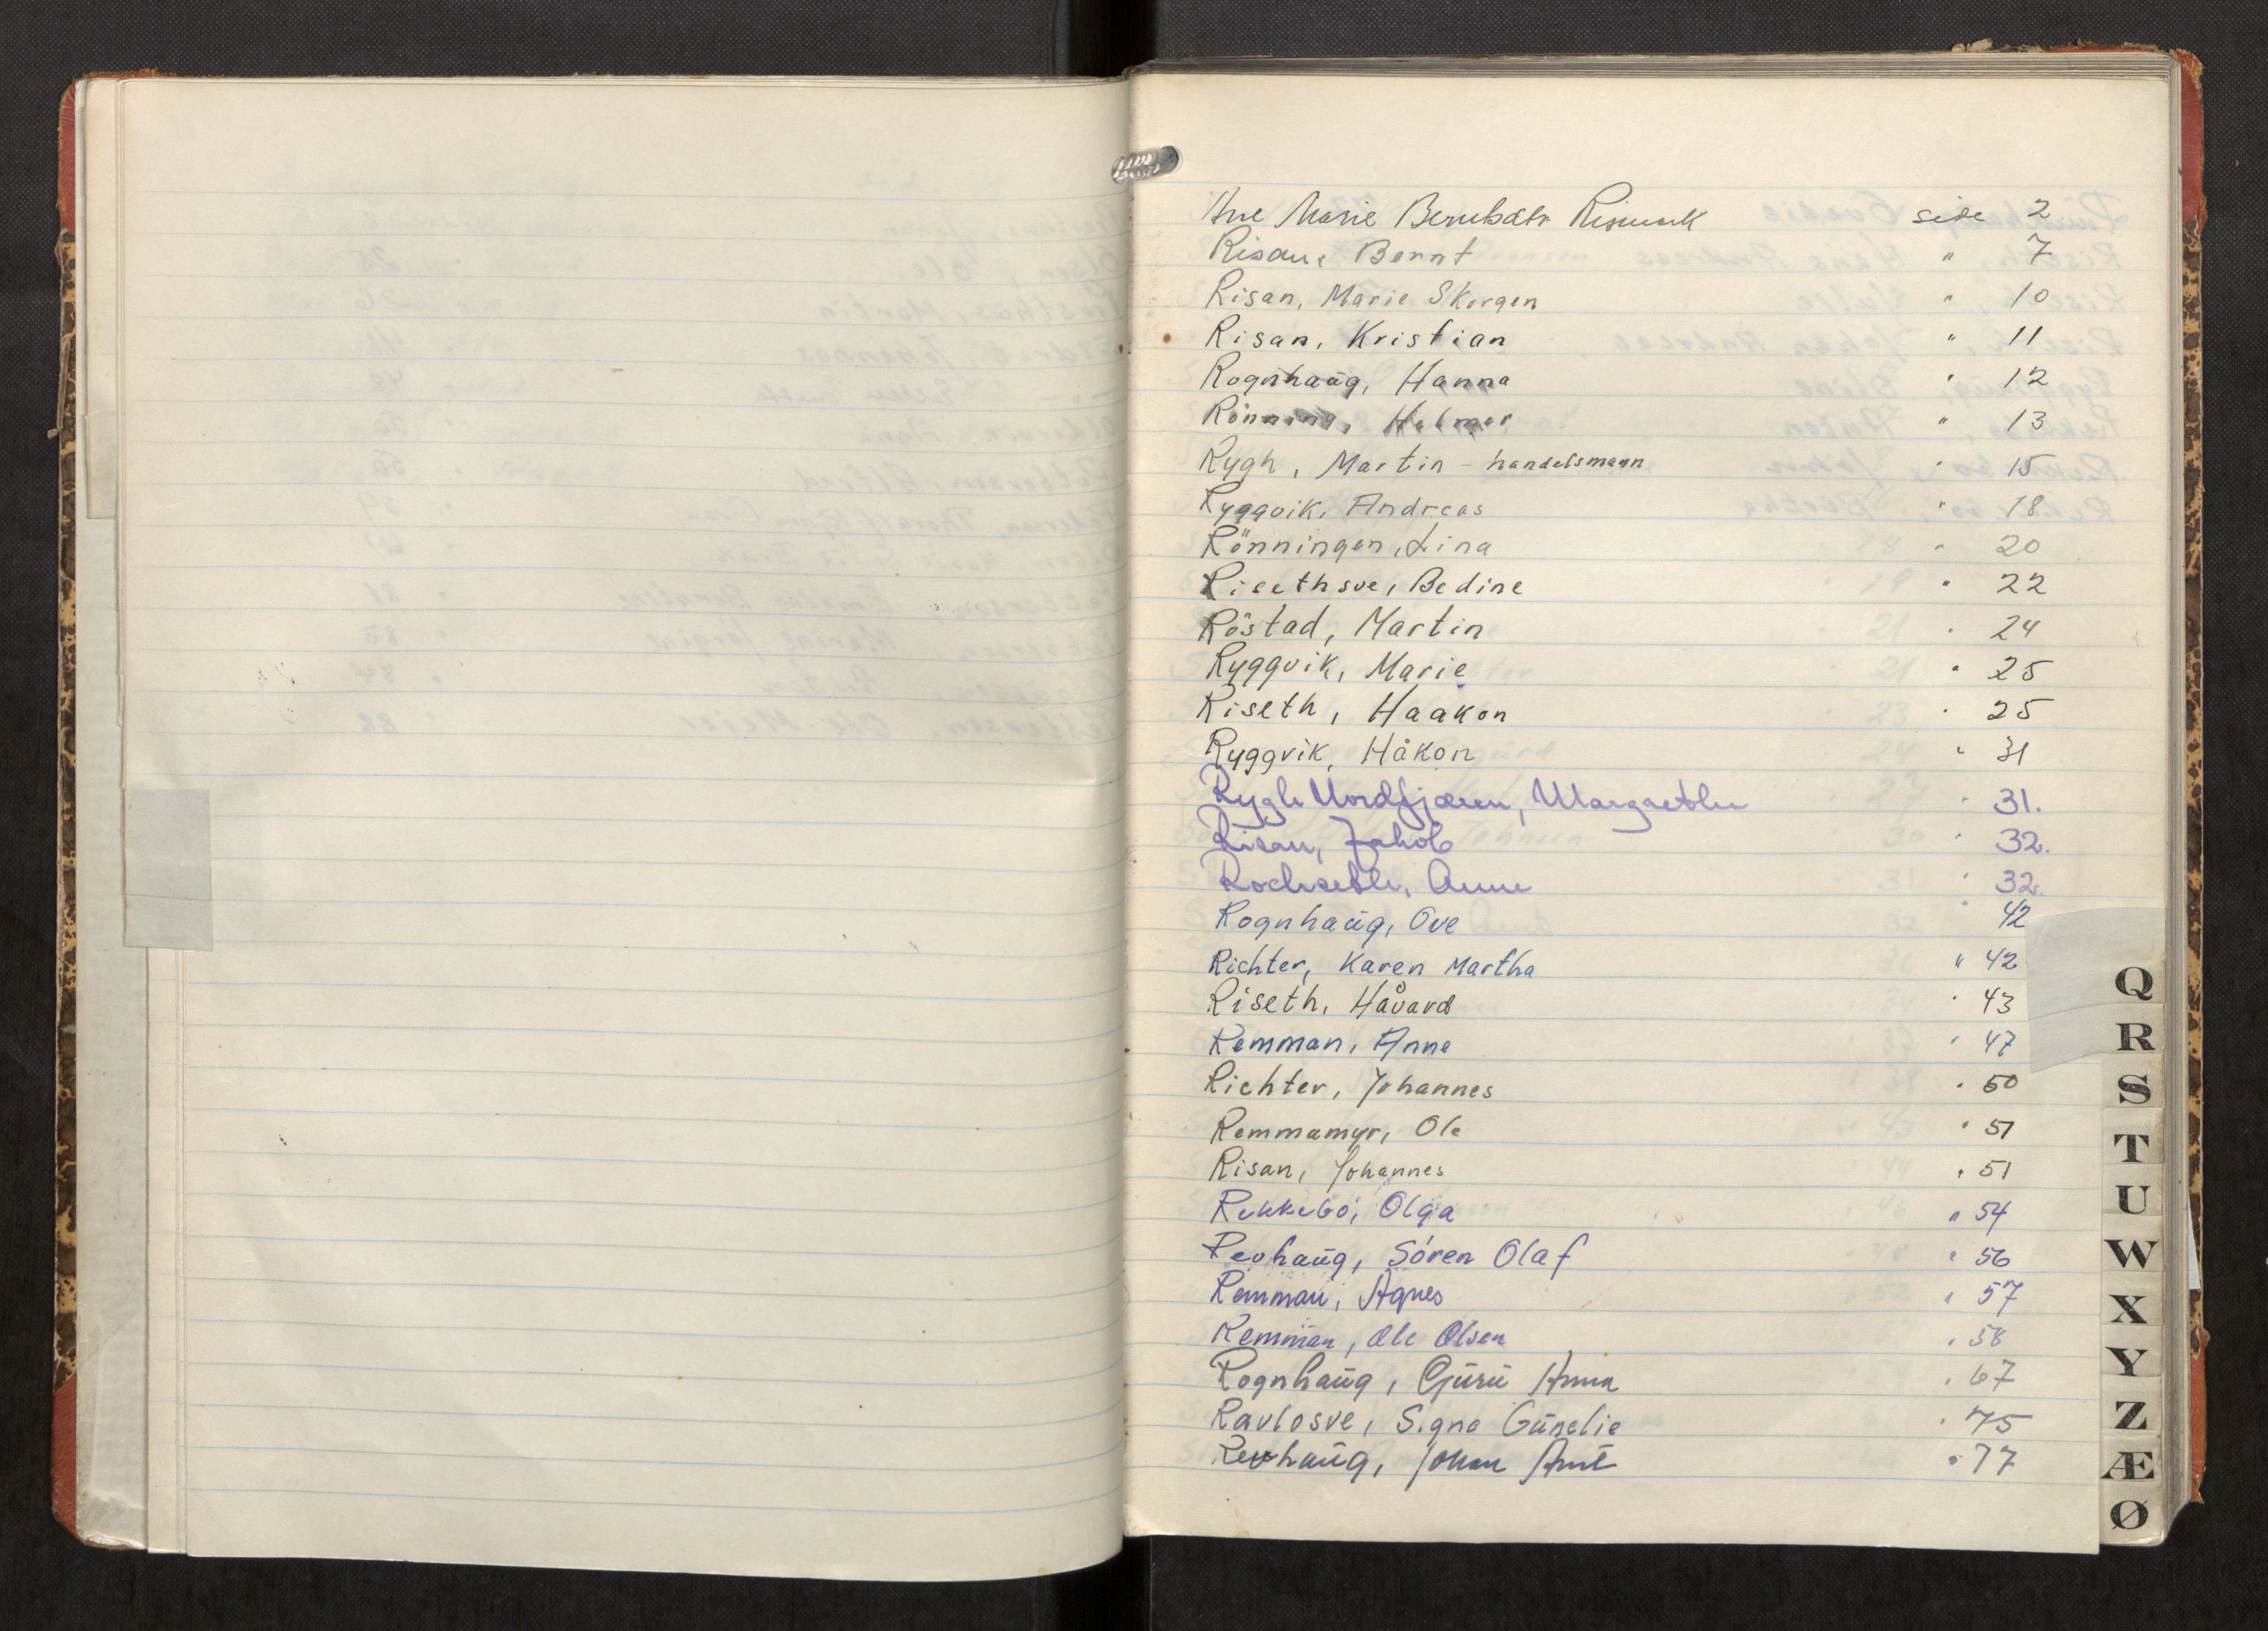 Ane Marie Berntsdtr Rismark side 2
Risan, Bernt " 7
Risan, Marie Skorgen " 10
Risan, Kristian " 11
Rognhaug, Hanna " 12
Rönning, Helmer " 13
Rygh, Martin - handelsmann " 15
Ryggvik, Andreas " 18
Rönningen, Lina " 20
Risethsve, Bedine " 22
Röstad, Martin " 24
Ryggvik, Marie " 25
Riseth, Haakon " 25
Ryggvik, Håkon " 31
Rygh Nordfjæren, Margrethe " 31.
Risan, Jakob " 32.
Rochseth, Anne " 32.
Rognhaug, Ove " 42
Richter, Karen Martha " 42
Riseth, Håvard " 43
Remman, Anne " 47
Richter, Johannes " 50
Remmamyr, Ole " 51
Risan, Johannes " 51
Rekkebö, Olga " 54
Revhaug, Sören Olaf " 56
Remman, Agnes " 57
Remman, Ole Olsen " 58
Rognhaug, Guru Anna " 67
Ravlosve, Signe Gunelie " 75
Revhaug, Johan Arnt " 77
Q
R
S
T
U
W
X
Y
Z
Æ
Ø